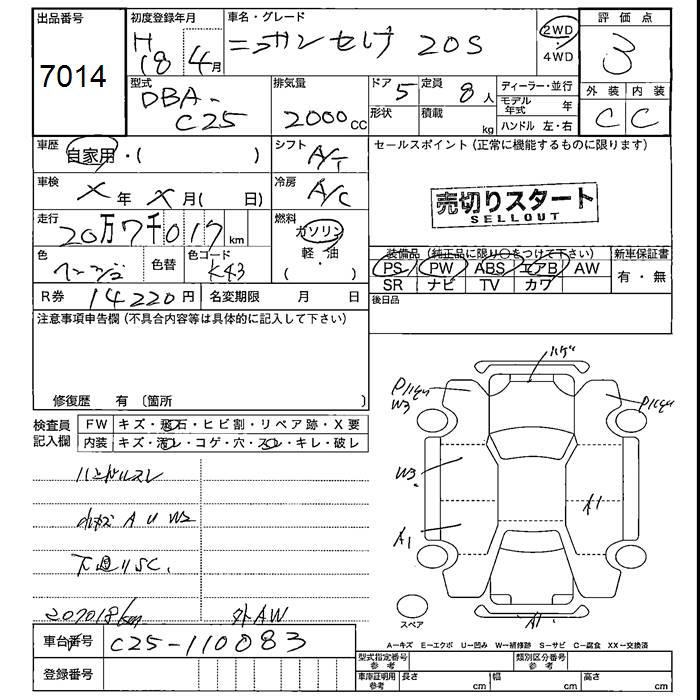 出品番号
7014
初度登録年月
H18 4月
車名・グレード
ニッサンセレナ 20S
2WD
4WD
評価点
3
外装 内装
C C
型式
DBA-C25
排気量
2000cc
ドア 5
形状
定員 8人
積載 kg
ディーラー・並行
モデル年式 年
ハンドル 左・右
車歴
自家用・( )
シフト A/T
車検
X年 X月( 日)
冷房 A/C
走行
20万7千017km
燃料
ガソリン
軽・油
( )
色
色替
色コード
K43
R券 14220円
名変期限 月 日
セールスポイント (正常に機能するものに限ります)
売切りスタート
SELLOUT
装備品 (純正品に限り○をつけて下さい)
PS PW ABS エアB AW
SR ナビ TV カワ
新車保証書
有・無
後日品
注意事項申告欄 (不具合内容等は具体的に記入して下さい)
修復歴 有 〔箇所 〕
検査員記入欄
FW キズ・飛石・ヒビ割・リペア跡・X要
内装 キズ・汚レ・コゲ・穴・スレ・キレ・破レ
ハンドルスレ
A U W2
下廻りSC.
207018km 外AW
ハゲ
W3
W3
A1
A1
A1
スペア
A−キズ E−エクボ U−凹み W−補修跡 S−サビ C−腐食 XX−交換済
車台番号 C25-110083
登録番号
型式指定番号 参考
類別区分番号 参考
車庫証明用 参考
長さ cm
幅 cm
高さ cm